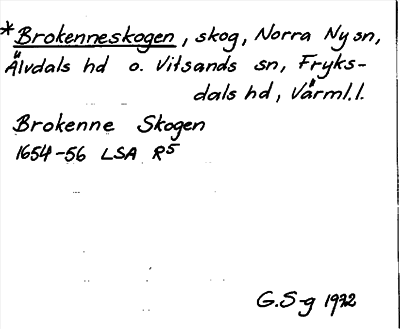 *Brokenneskogen, skog, Norra Ny sn,
Älvdals hd o. Vitsands sn, Fryks-
dals hd, Värml.l.
Brokenne Skogen
1654-56 LSA R5
G.S-g 1932